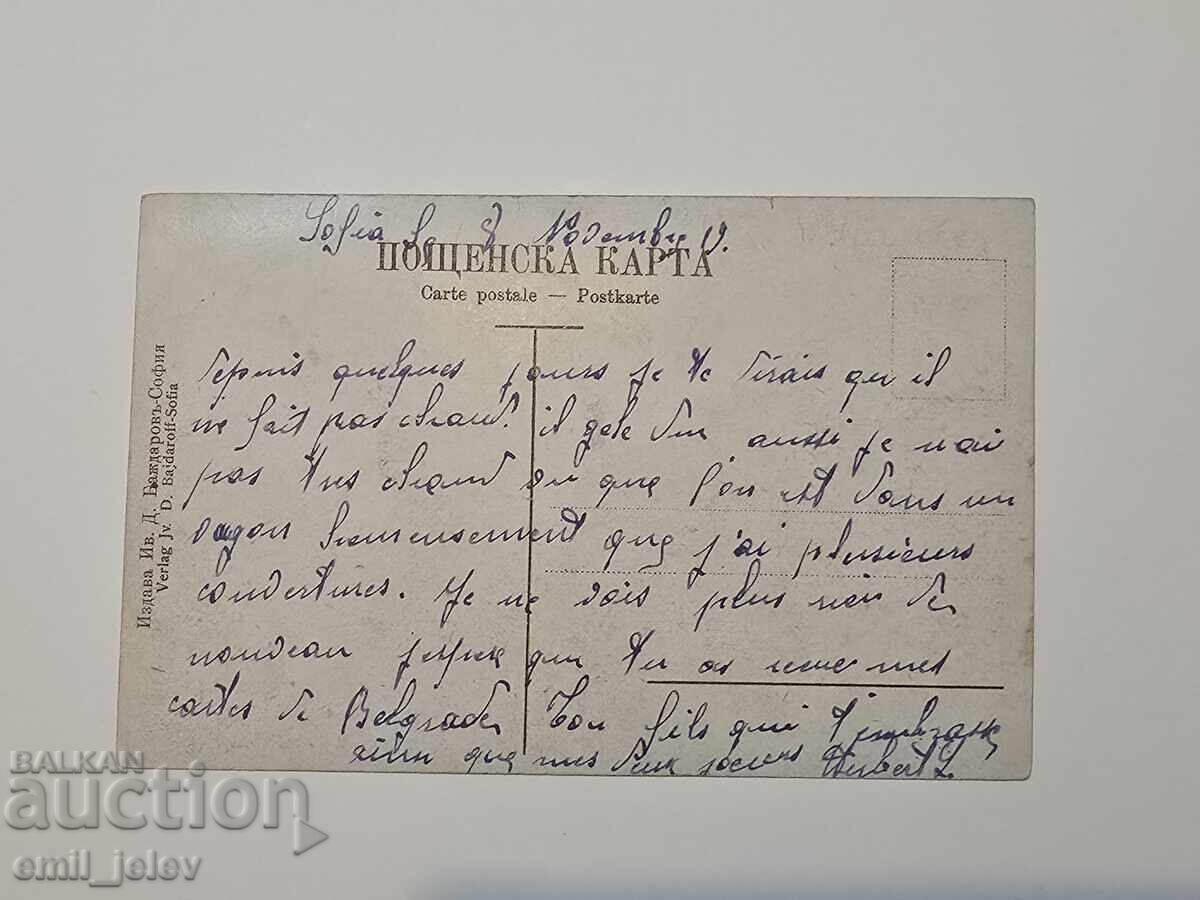 Sofia le 8 Novembre
ПОЩЕНСКА КАРТА
Carte postale — Postkarte
Издава Ив. Д. Баждаровъ-София
Verlag Jv. D. Bajdaroff-Sofia
Depuis quelques jours je te dirais qu il
ne fait pas chaud. il gele dur aussi je n ai
pas tres chaud vu que l'on est dans un
vagon heureusement que j'ai plusieurs
couvertures. Je ne vois plus rien de
nouveau j que tu as mes
cartes de Belgrade Ton fils qui t embrasse
que mes deux soeurs
BALKAN
auction
emil_jelev